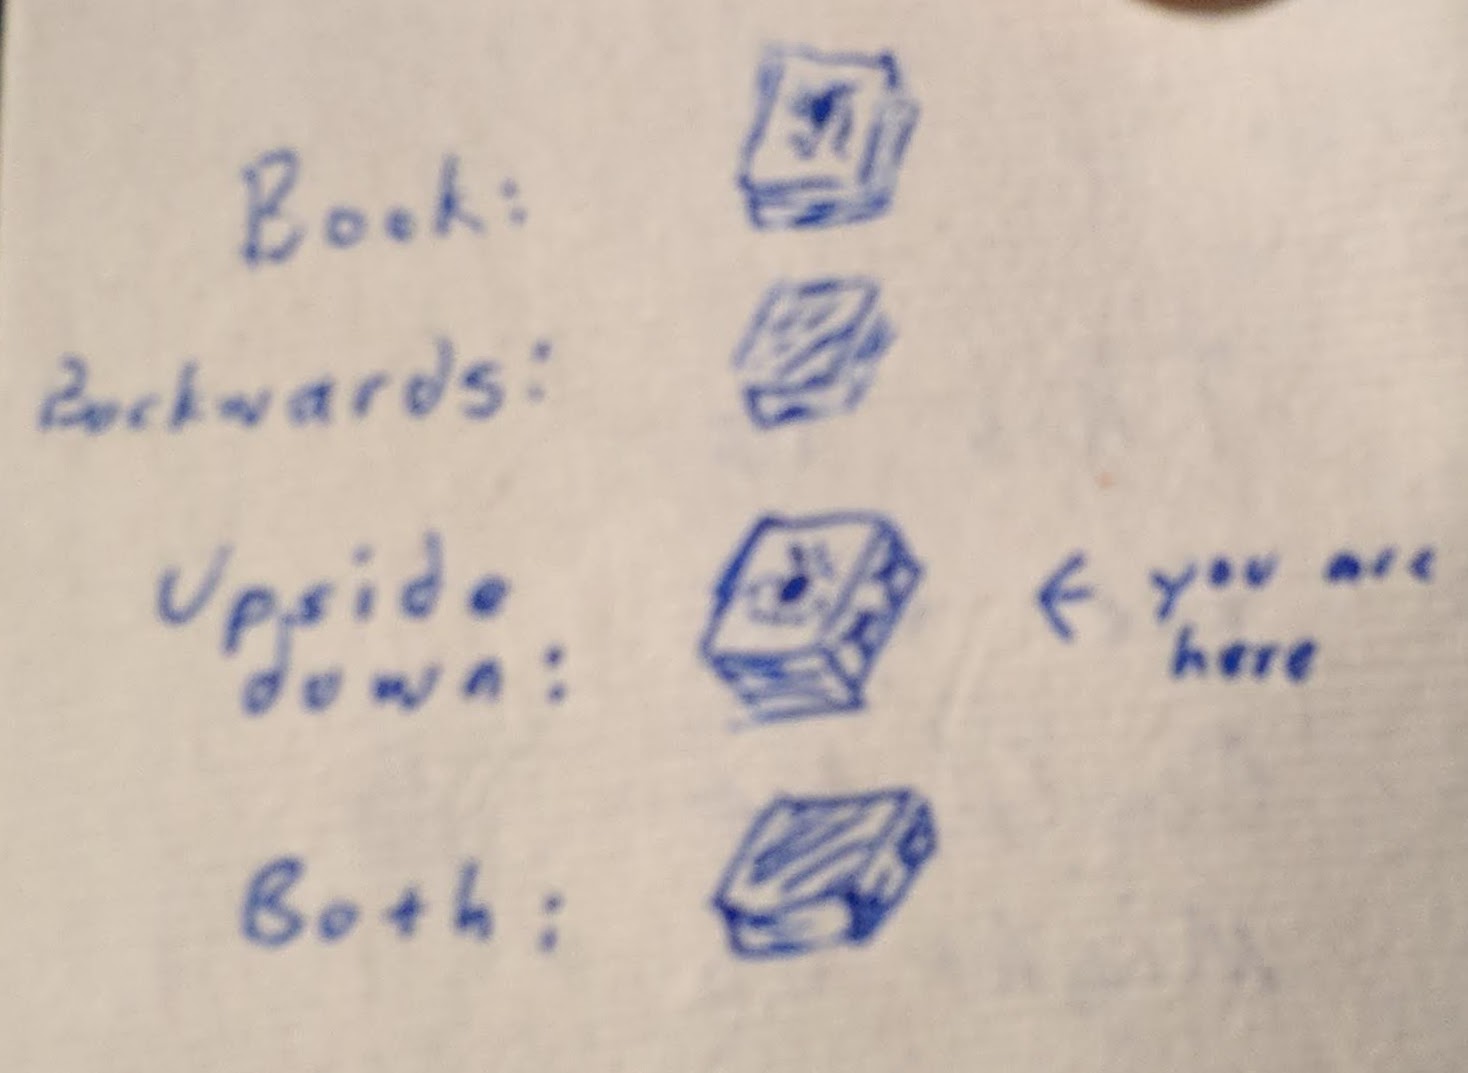 Book:
Backwards:
Upside
down:
← you are
here
Both: